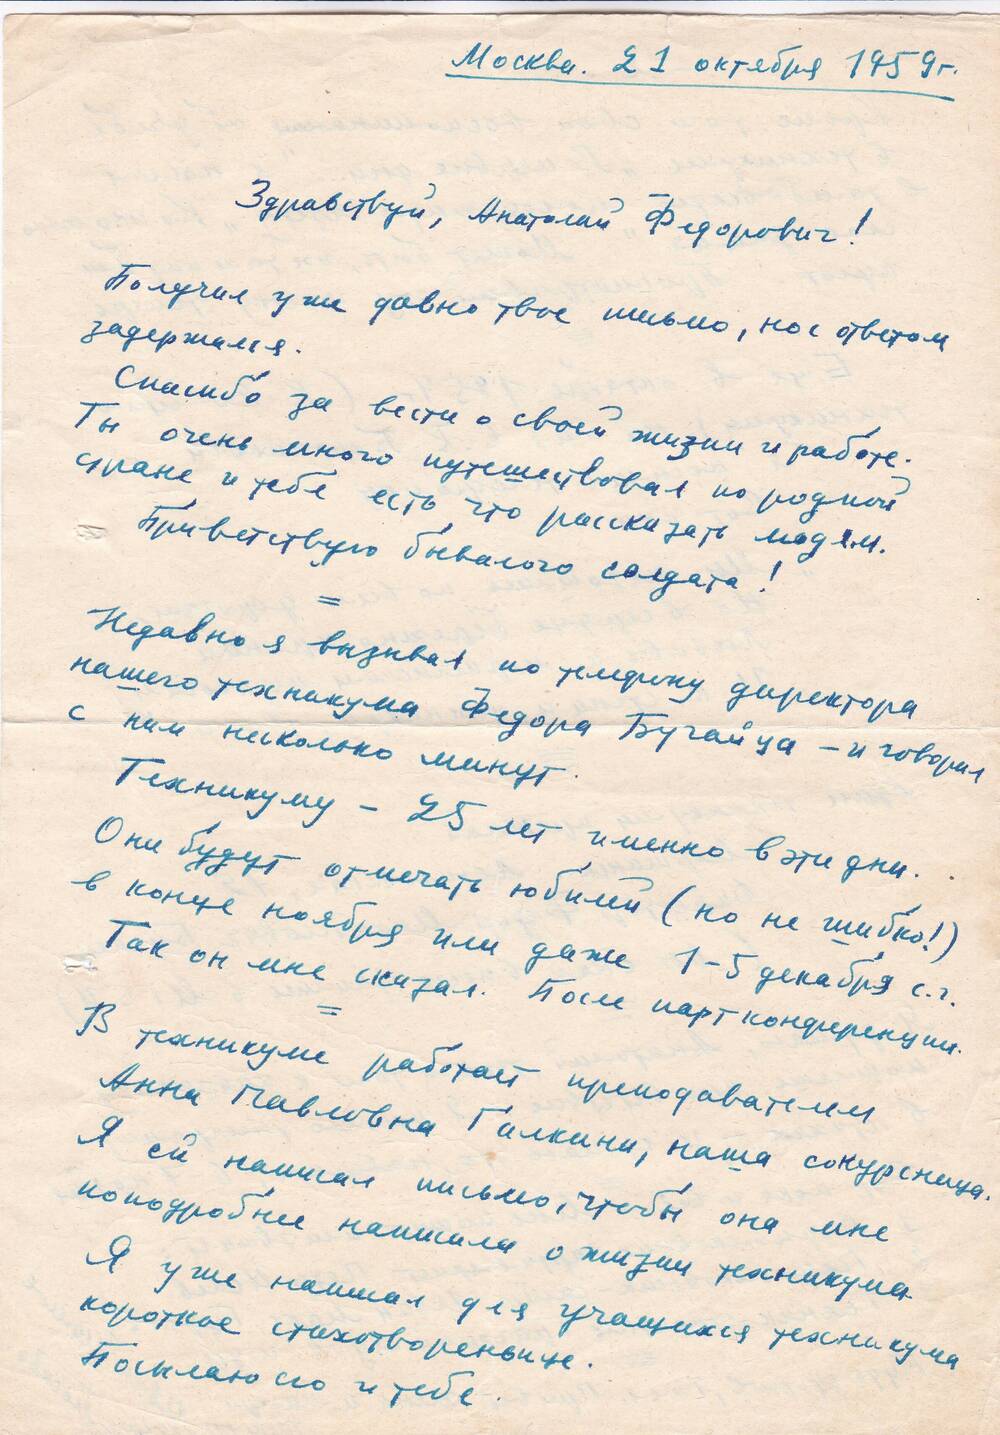 Москва. 21 октября 1959 г.
Здравствуй, Анатолий Федорович!
Получил уже давно твое письмо, но с ответом
задержался.
Спасибо за вести о своей жизни и работе.
Ты очень много путешествовал по родной
стране и тебе есть что рассказать людям.
Приветствую бывалого солдата!
=
Недавно я вызывал по телефону директора
нашего техникума Федора Бугайца – и говорил
с ним несколько минут.
Техникуму – 25 лет именно в эти дни.
Они будут отмечать юбилей (но не шибко!)
в конце ноября или даже 1–5 декабря с.г.
Так он мне сказал. После партконференции.
=
В техникуме работает преподавателем
Анна Павловна Галкина, наша сокурсница.
Я ей написал письмо, чтобы она мне
поподробнее написала о жизни техникума
Я уже написал для учащихся техникума
короткое стихотвореньице.
Посылаю его и тебе.